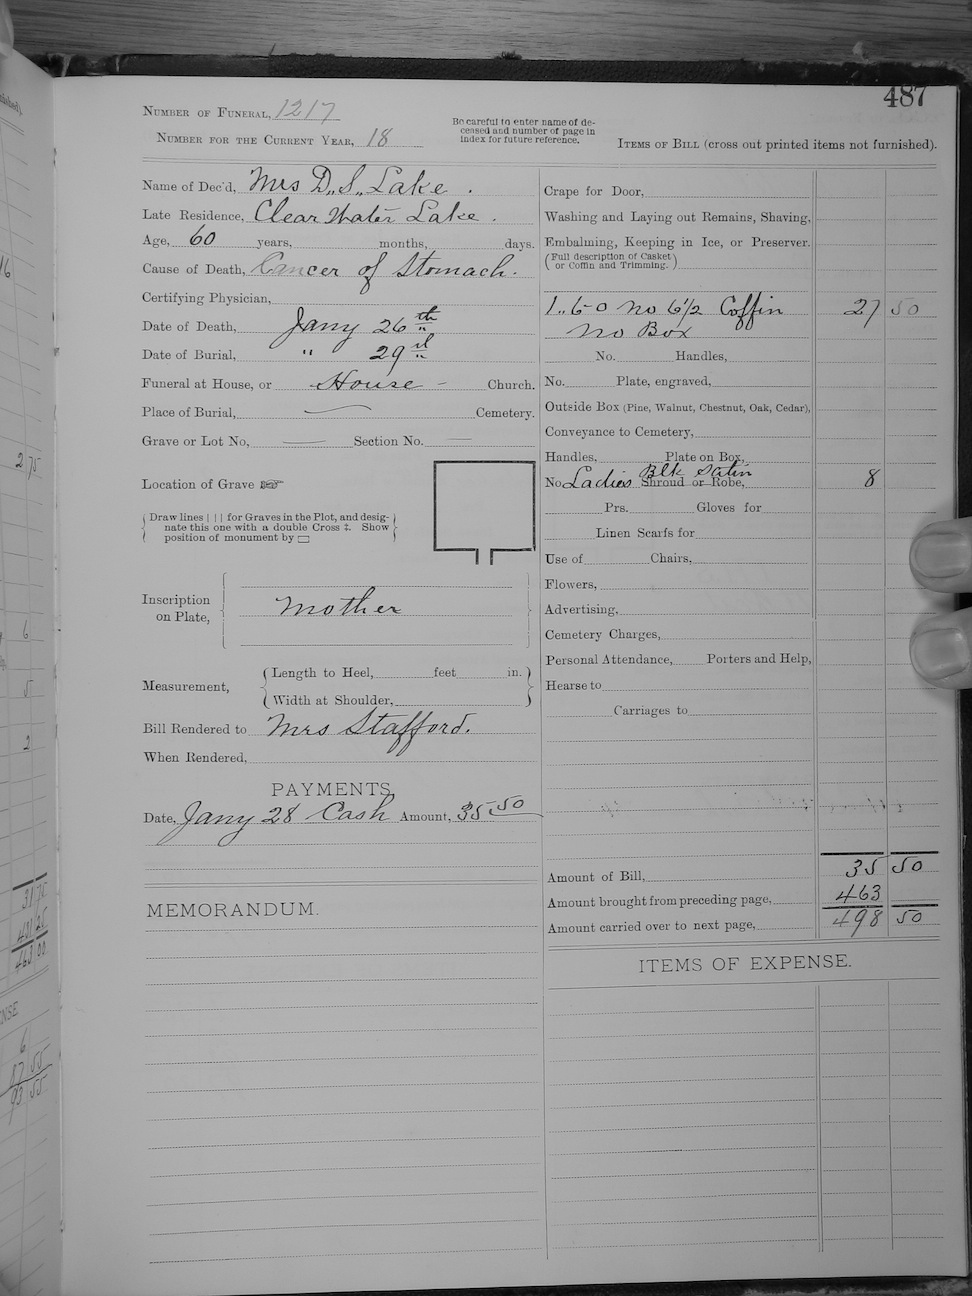 487
Number of Funeral, 1217
Number for the Current Year, 18
Be careful to enter name of de-
ceased and number of page in
index for future reference.
Items of Bill (cross out printed items not furnished).
Name of Dec'd, Mrs D. S. Lake.
Late Residence, Clear Water Lake.
Age, 60 years, months, days.
Cause of Death, Cancer of Stomach.
Certifying Physician,
Date of Death, Jany 26th
Date of Burial, " 29
Funeral at House, or House Church.
Place of Burial, Cemetery.
Grave or Lot No, Section No.
Location of Grave ☞
Draw lines | | | for Graves in the Plot, and desig-
nate this one with a double Cross ‡. Show
position of monument by ▭
Inscription
on Plate,
Mother
Measurement,
Length to Heel, feet in.
Width at Shoulder,
Bill Rendered to Mrs Stafford.
When Rendered,
PAYMENTS
Date, Jany 28 Cash Amount, 35.50
MEMORANDUM.
Crape for Door,
Washing and Laying out Remains, Shaving,
Embalming, Keeping in Ice, or Preserver.
(Full description of Casket
or Coffin and Trimming.)
No 6 1/2 Coffin 27 50
No Box
No. Handles,
No. Plate, engraved,
Outside Box (Pine, Walnut, Chestnut, Oak, Cedar),
Conveyance to Cemetery,
Handles, Plate on Box,
Blk Satin
No Ladies Shroud or Robe, 8
Prs. Gloves for
Linen Scarfs for
Use of Chairs,
Flowers,
Advertising,
Cemetery Charges,
Personal Attendance, Porters and Help,
Hearse to
Carriages to
Amount of Bill, 35 50
Amount brought from preceding page, 463
Amount carried over to next page, 498 50
ITEMS OF EXPENSE.
16
2 75
6
5
2
31 75
431 25
463 00
6
87 55
93 55